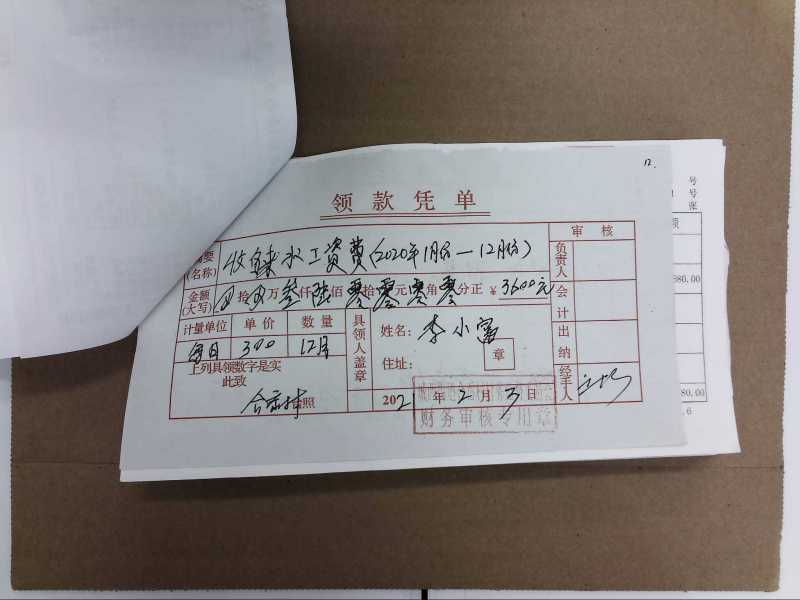 12.
领款凭单
摘要(名称) 收自来水工资费(2020年1月份—12月份)
金额(大写) 拾 万叁仟陆佰零拾零元零角零分正 ¥3600元
计量单位 单价 数量
每月 300 12月
上列具领数字是实
此致
台照
具领人盖章
姓名: 李小富
住址:
章
2021年2月3日
财务审核专用章
审核
负责人
会计
出纳
经手人
号
号
张
额
380.00
380.00
.6